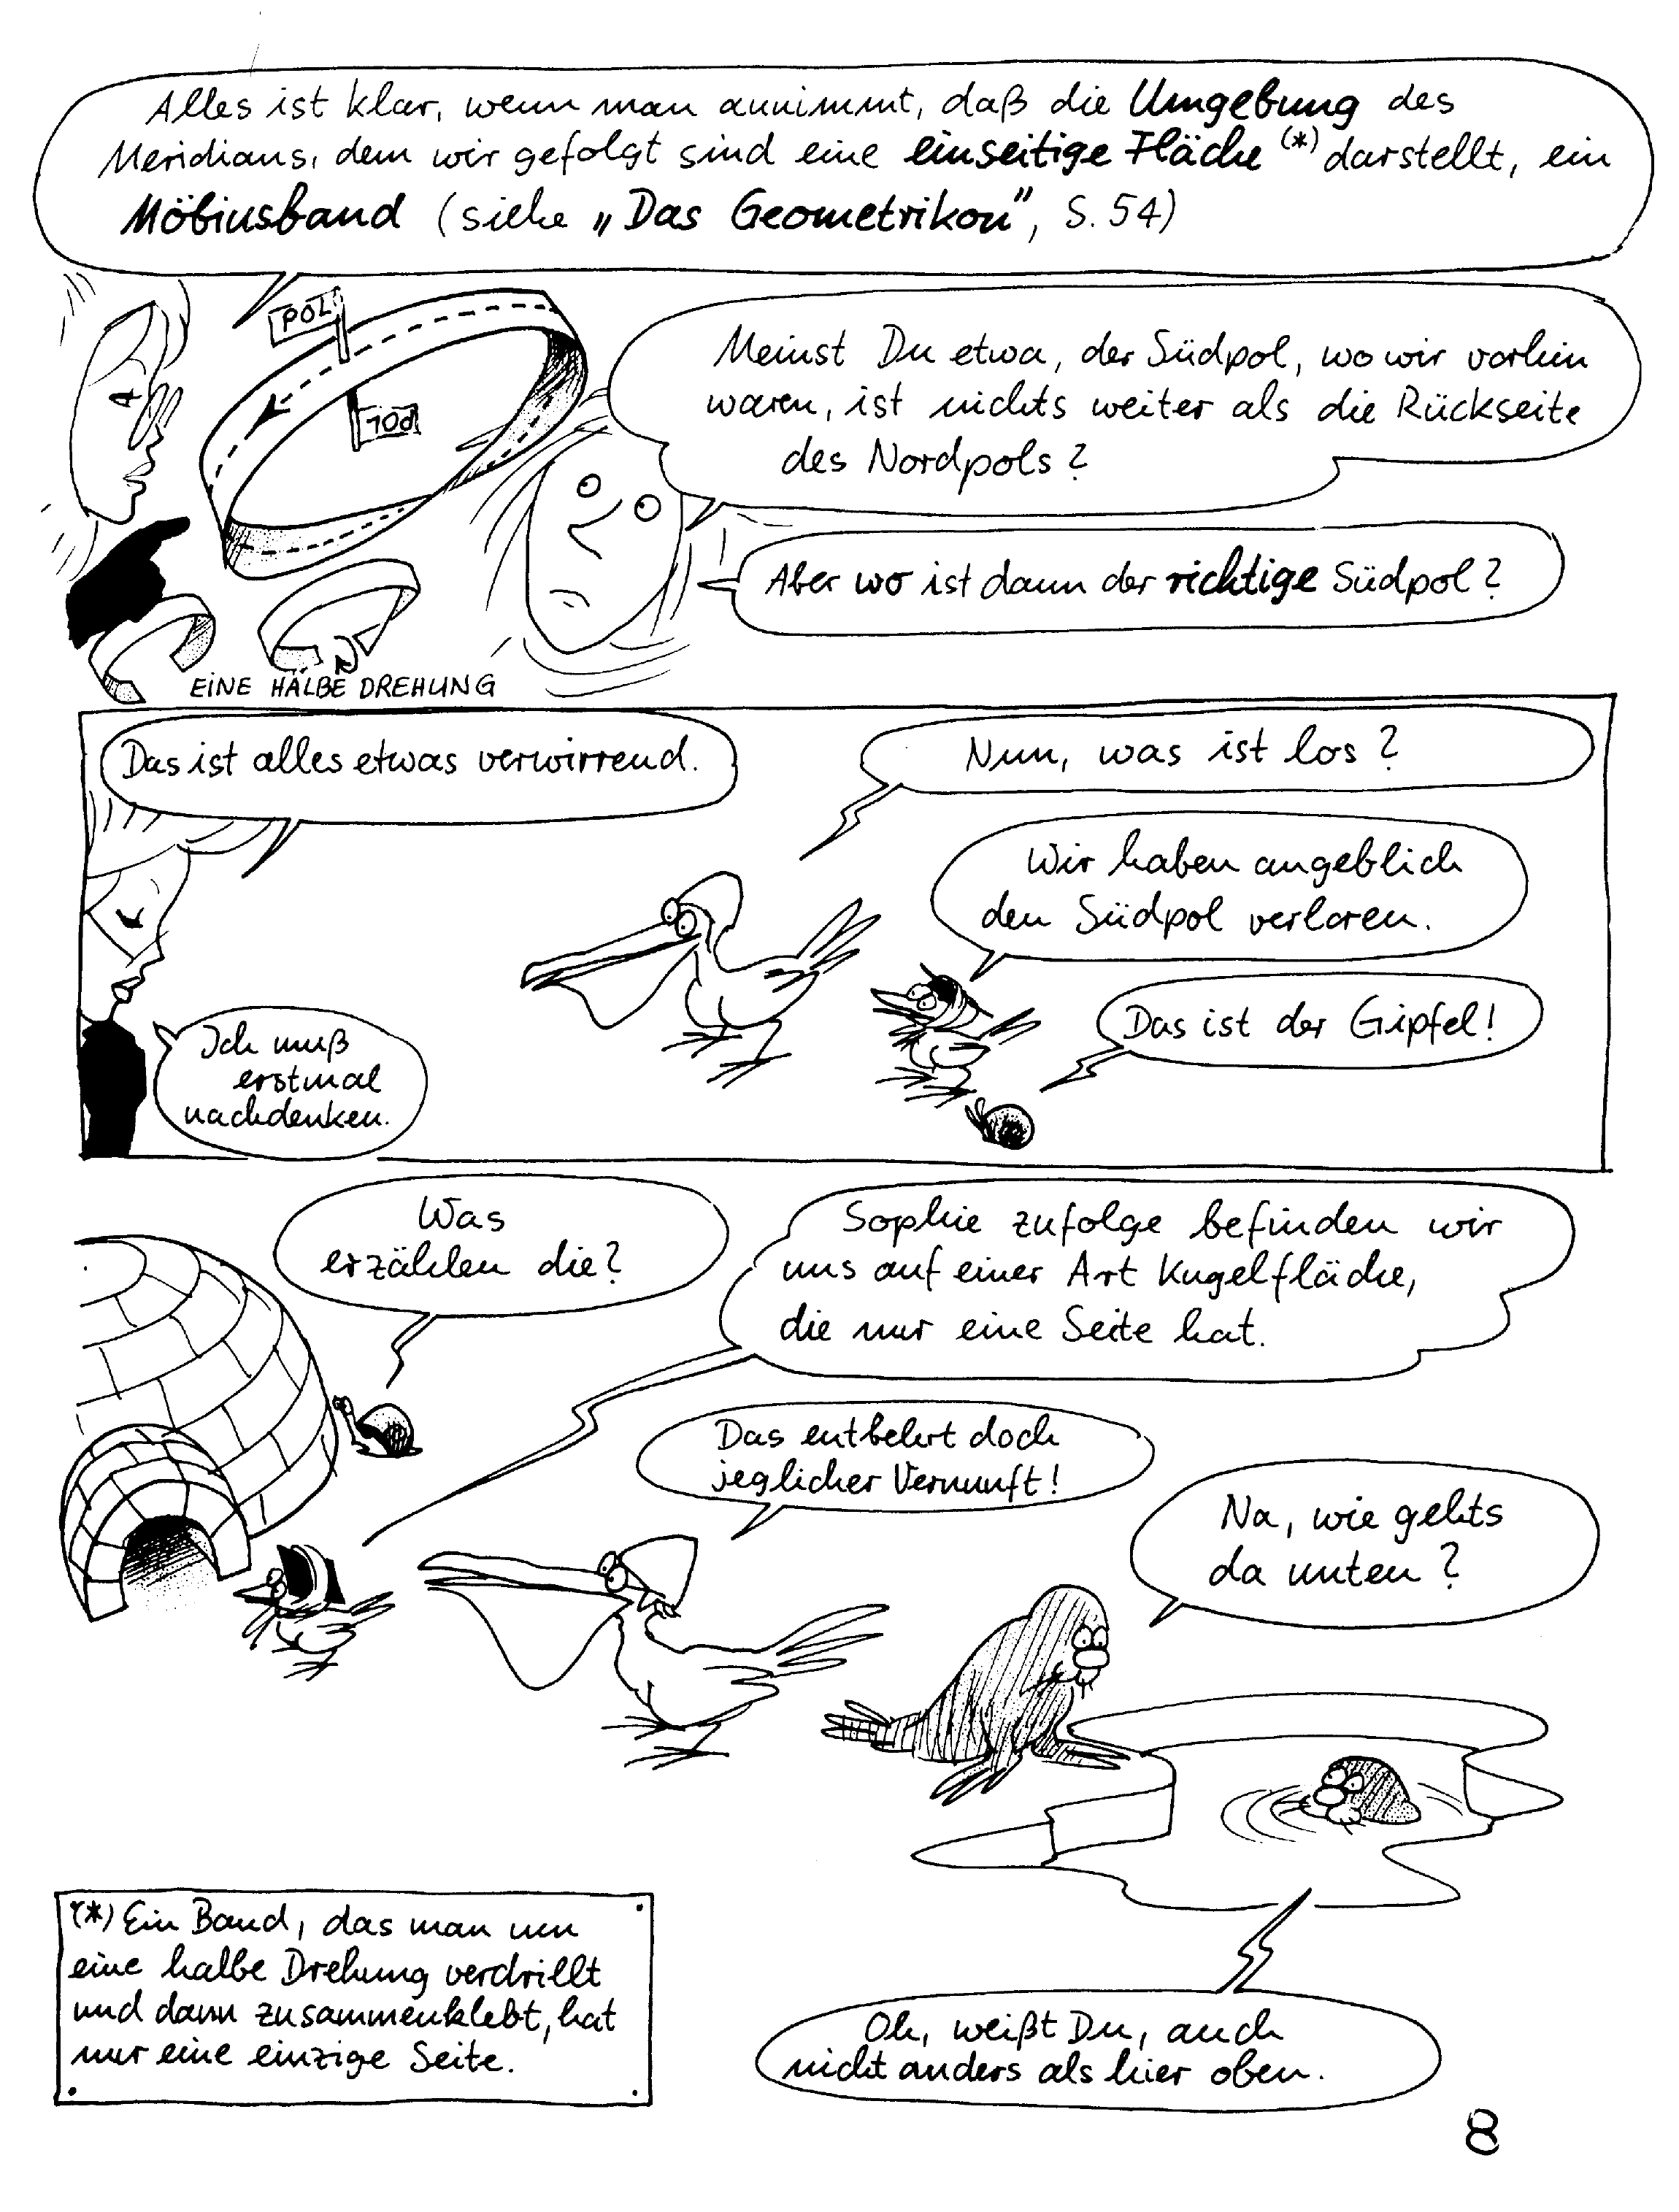 Alles ist klar, wenn man annimmt, daß die Umgebung des
Meridians, dem wir gefolgt sind eine einseitige Fläche (*) darstellt, ein
Möbiusband (siehe „Das Geometrikon", S. 54)
POL
POL
Meinst Du etwa, der Südpol, wo wir vorhin
waren, ist nichts weiter als die Rückseite
des Nordpols?
Aber wo ist dann der richtige Südpol?
EINE HALBE DREHUNG
Das ist alles etwas verwirrend.
Nun, was ist los?
Wir haben angeblich
den Südpol verloren.
Das ist der Gipfel!
Ich muß
erstmal
nachdenken.
Was
erzählen die?
Sophie zufolge befinden wir
uns auf einer Art Kugelfläche,
die nur eine Seite hat.
Das entbehrt doch
jeglicher Vernunft!
Na, wie gehts
da unten?
(*) Ein Band, das man um
eine halbe Drehung verdrillt
und dann zusammenklebt, hat
nur eine einzige Seite.
Oh, weißt Du, auch
nicht anders als hier oben.
8